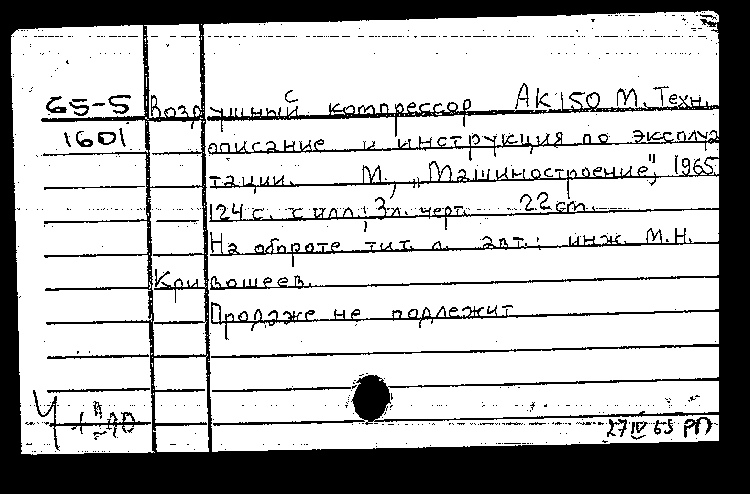 65-5 Воздушный компрессор АК150 М. Техн.
1601 описание и инструкция по эксплуа
тации. М., „Машиностроение", 1965
124 с. с илл.; 3 л. черт. 22 cm.
На обороте тит. л. авт.: инж. М.Н.
Кривошеев.
Продаже не подлежит
27 IV 65 РП